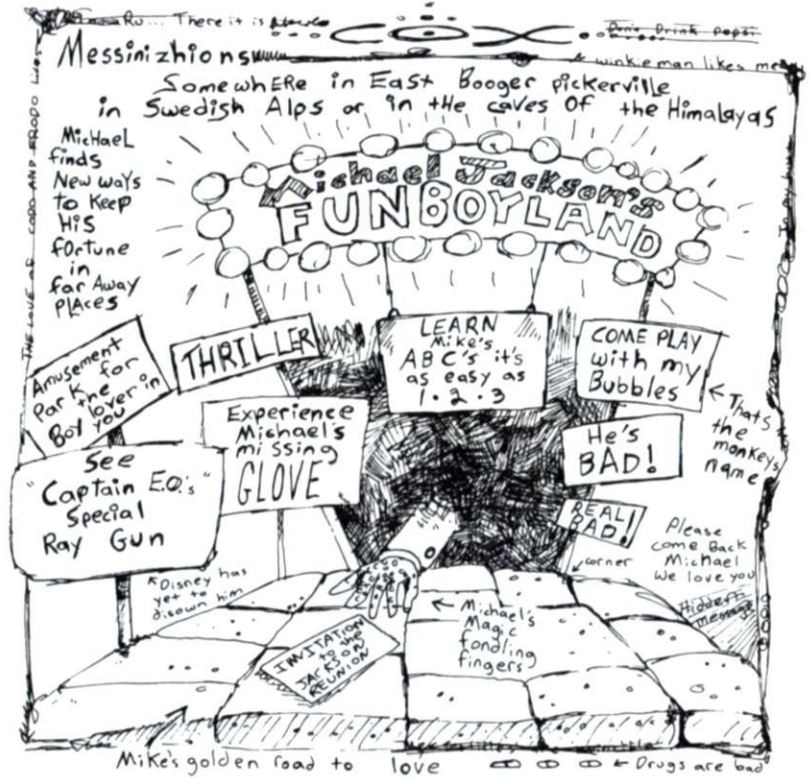 Ru... There it is
Don't Drink pepsi
Messinizhions
winkieman likes me
SomewhERe in East Booger pickerville
in Swedish Alps or in tHe caves Of the Himalayas
THE LOVE OF
AND FRODO Live
MicHaeL
finds
New ways
to Keep
HiS
fOrtune
in
far Away
PlAces
Michael Jackson's
FUNBOYLAND
Amusement
Park for
the
Boy lover in
you
THRILLER
LEARN
Mike's
ABC's it's
as easy as
1·2·3
COME PLAY
with my
Bubbles
← That's
the
monkeys
name
Experience
Michael's
missing
GLOVE
He's
BAD!
See
"Captain E.O.'s"
Special
Ray Gun
REAL
BAD!
Please
come Back
Michael
We love you
corner
Disney has
yet to
disown him
Hidden
Message
← Michael's
Magic
fondling
fingers
INVITATION
to the
JACKSON
REUNION
Mike's golden road to love
← Drugs are bad